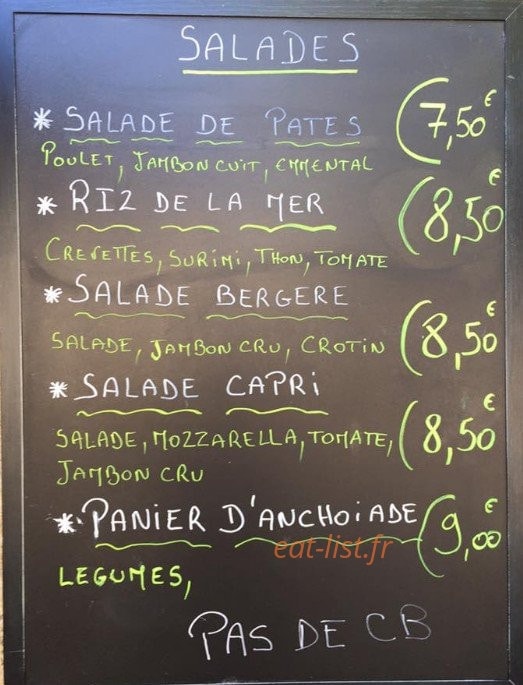 SALADES
* SALADE DE PATES (7,50€
POULET, JAMBON CUIT, EMMENTAL
* RIZ DE LA MER (8,50€
CREVETTES, SURIMI, THON, TOMATE
* SALADE BERGERE
SALADE, JAMBON CRU, CROTIN (8,50€
* SALADE CAPRI
SALADE, MOZZARELLA, TOMATE, (8,50€
JAMBON CRU
* PANIER D'ANCHOIADE (9,00€
eat-list.fr
LEGUMES,
PAS DE CB